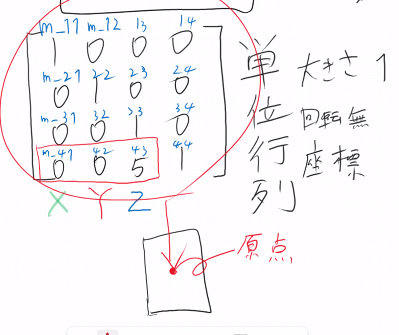 m_11 m_12 13 14
1 0 0 0
m_21 22 23 24
0 1 0 0
m_31 32 33 34
0 0 1 0
m_41 42 43 44
0 0 5 1
X Y Z
単位行列
大きさ 1
回転無
座標
原点